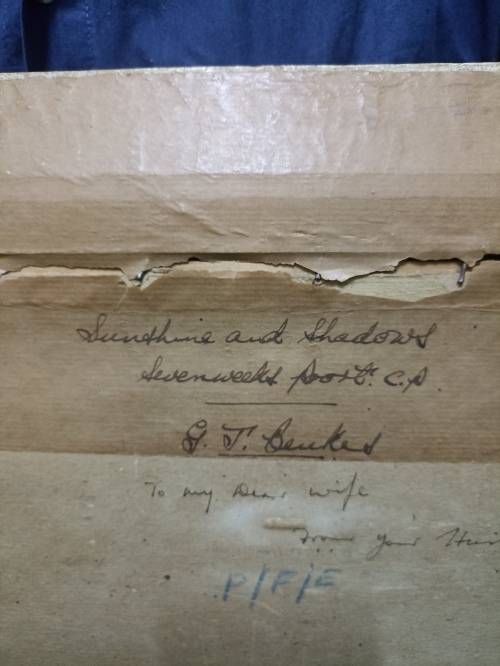 Sunshine and Shadows
Sevenweeks Poort. C.P.
G. T. Benkes
To my Dear wife
From your Hus
P/F/E